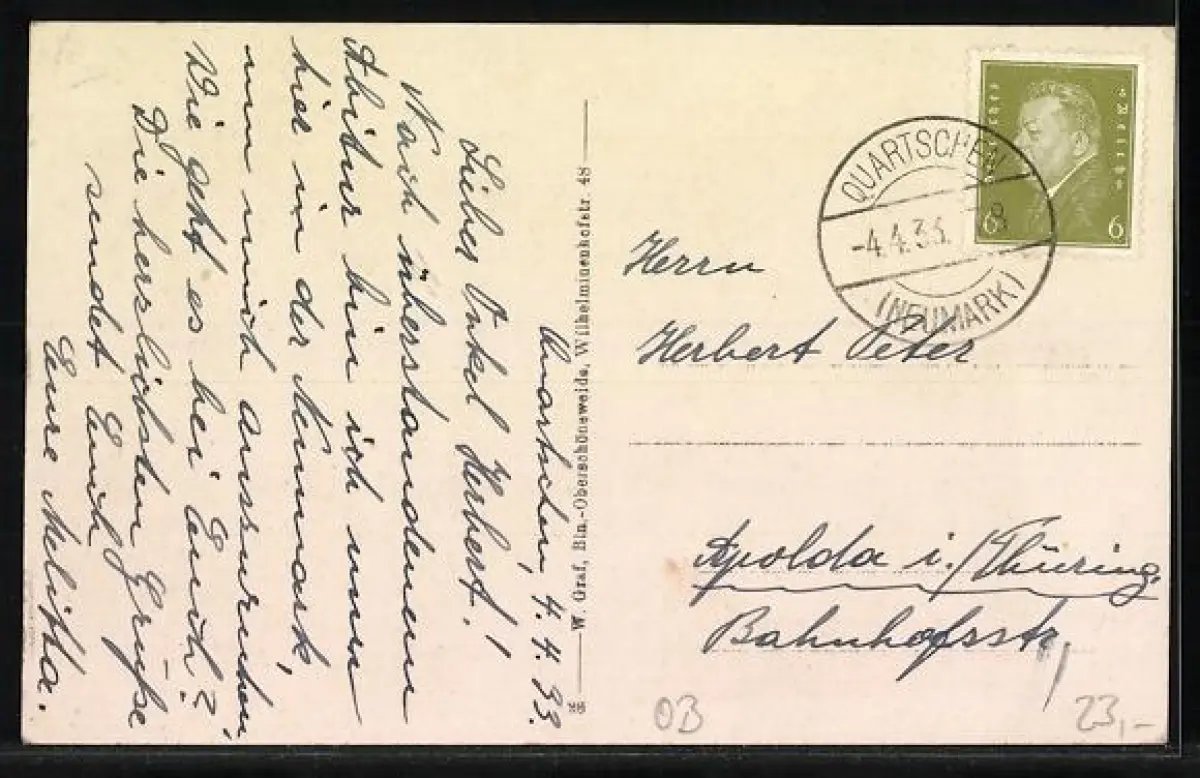 Quartschen, 4.4.33.
Lieber Onkel Herbert!
Nach überstandenem
Abitur bin ich nun
hier in der Neumark,
um mich auszuruhen.
Wie geht es bei Euch?
Die herzlichsten Grüße
sendet Euch
Eure Melitta.
W. Graf, Bln.-Oberschöneweide, Wilhelminenhofstr. 48
QUARTSCHEN
-4.4.33. 8
(NEUMARK)
6 6
Herrn
Herbert Peter
Apolda i./Thüring.
Bahnhofsstr.
OB
23,-